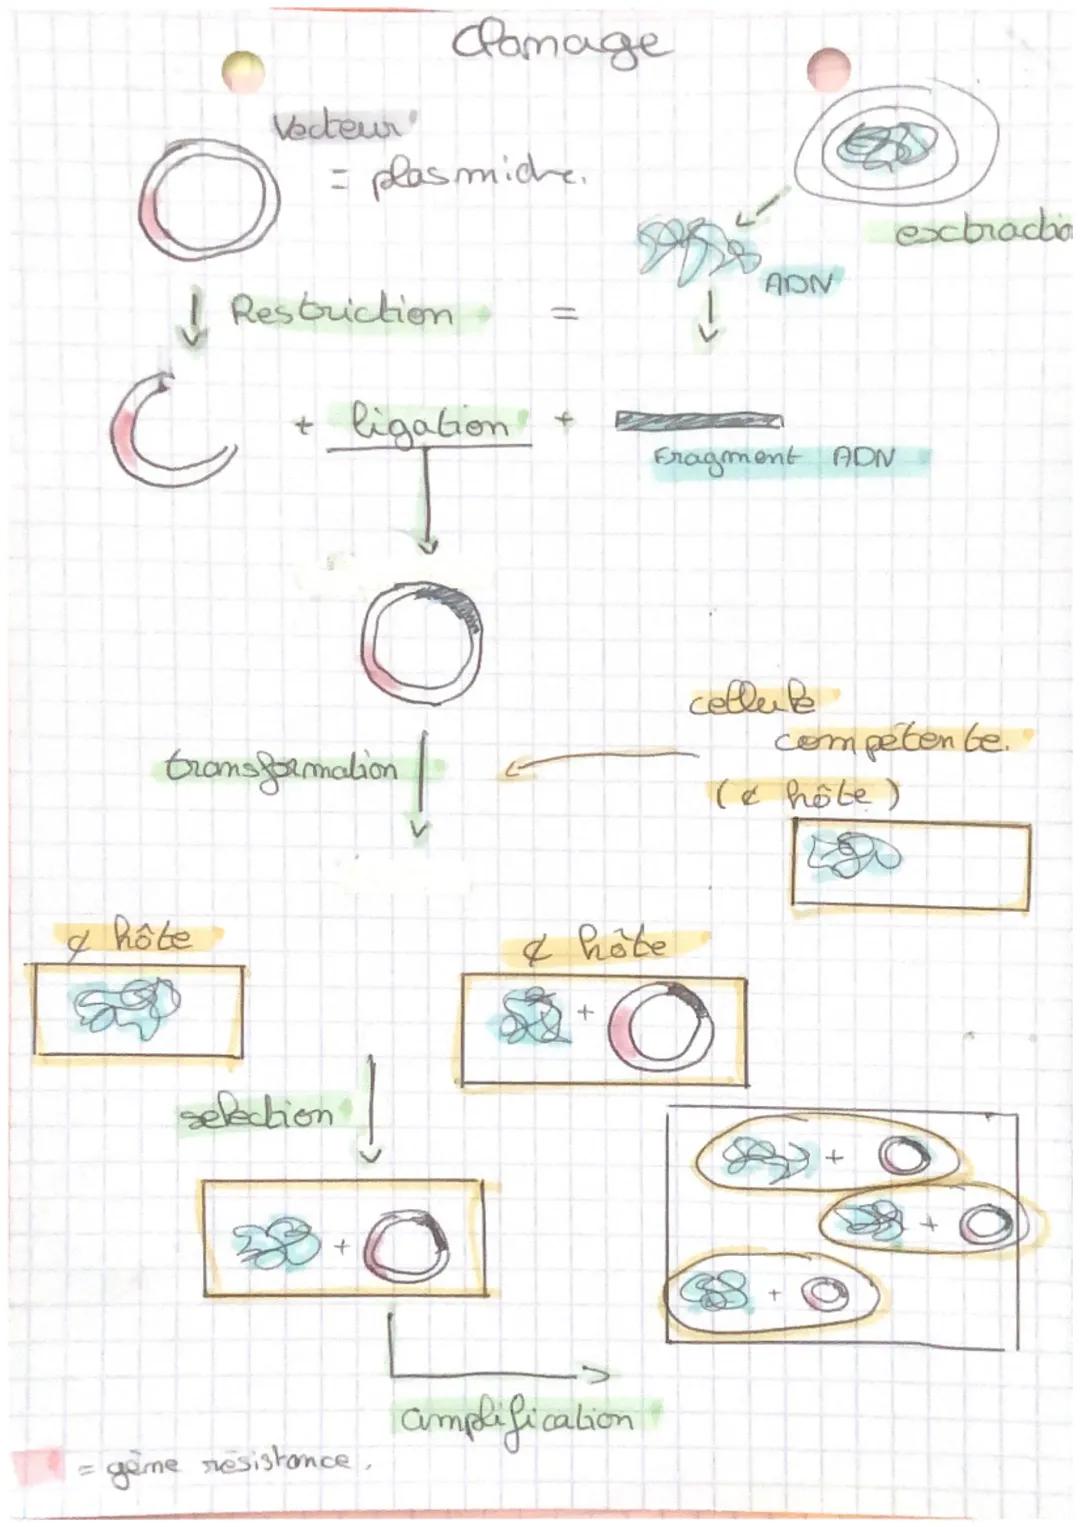 Clonage
Vecteur
= plasmide.
extractio
ADN
Restriction =
+ ligation +
Fragment ADN
cellule
compétente.
transformation
(¢ hôte)
¢ hôte
¢ hôte
+
selection
+
+
+
+
amplification
= gène résistance.